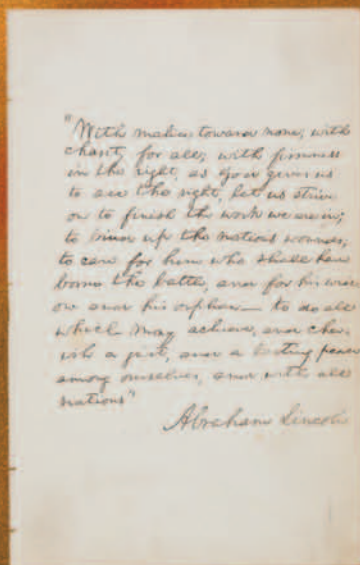 "With malice toward none; with
charity for all; with firmness
in the right, as God gives us
to see the right, let us strive
on to finish the work we are in;
to bind up the nation's wounds;
to care for him who shall have
borne the battle, and for his wid-
ow and his orphan— to do all
which may achieve, and cher-
ish a just, and a lasting peace
among ourselves, and with all
nations"
Abraham Lincoln